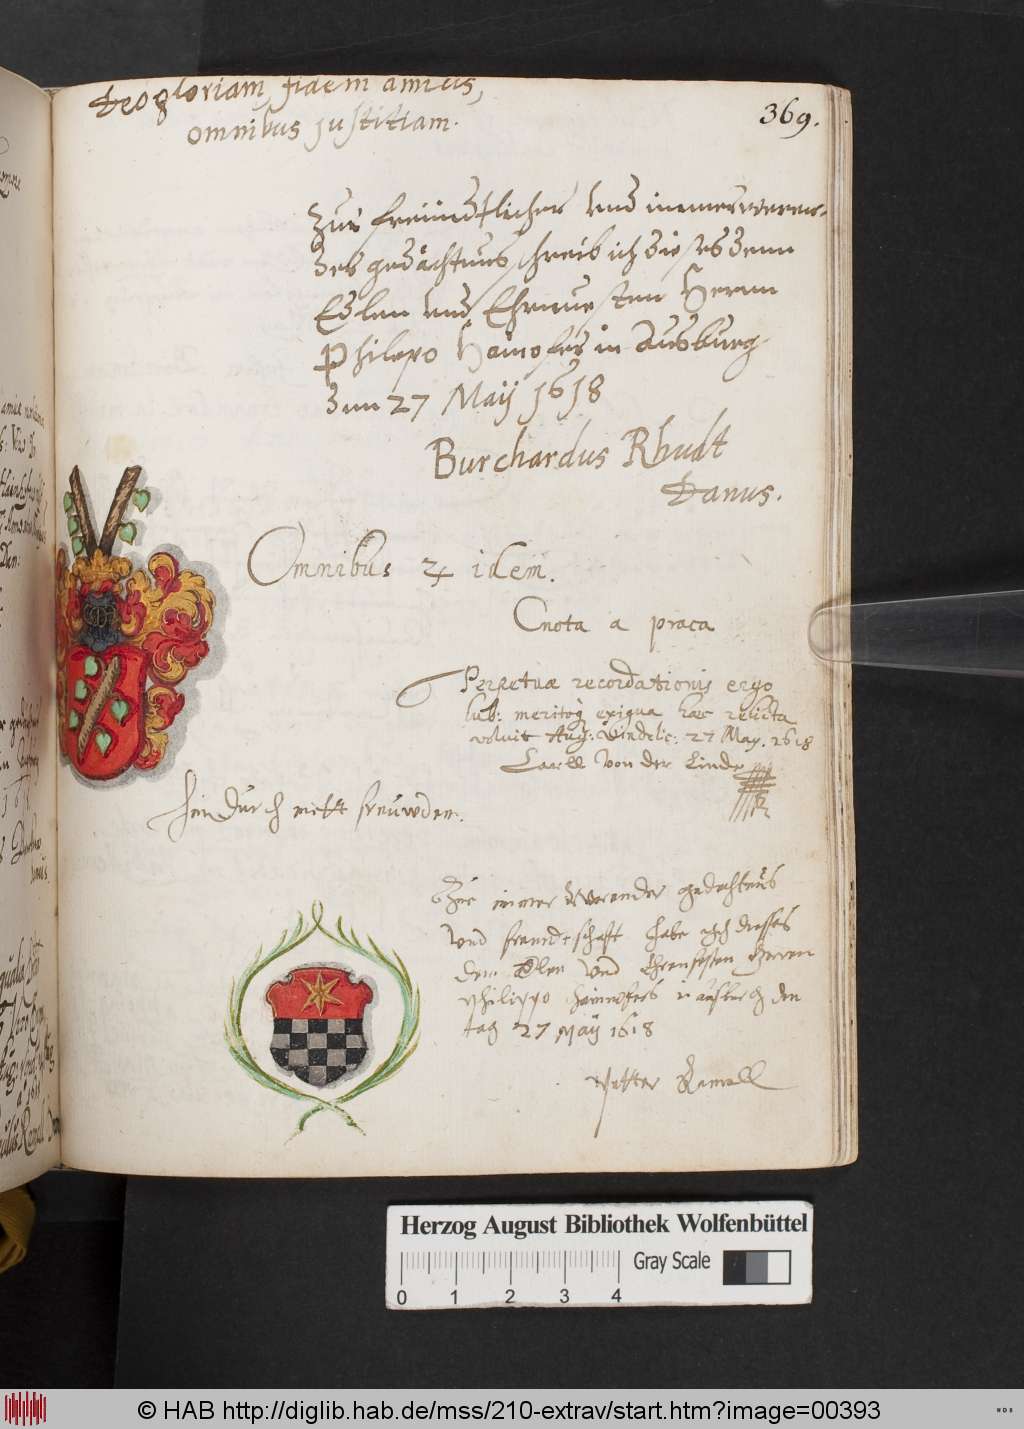 Deo gloriam, fidem amicis,
omnibus justitiam.
369.
Zur freündtlicher und immerweren-
der gedächtnus schreib ich dieses dem
Edlen und Ehrnuesten Herrn
Philippo Hainofer in Ausburg
den 27 Maÿ 1618
Burchardus Rhudt
Danus.
Omnibus idem.
Cnota a praca
Perpetuæ recordationis ergo
exigua hæc relicta
voluit Aug: Vindelic: 27 May. 1618
Carll von der Linde
hindurch mitt freuwden.
Zur immer werender gedechtnus
und freundtschaft habe ich disses
dem Edlen und Ehrenfesten Herren
Philippo Hainnofers in ausburch den
tag 27 Maÿ 1618
Petter Ramell
Herzog August Bibliothek Wolfenbüttel
Gray Scale
0 1 2 3 4
© HAB http://diglib.hab.de/mss/210-extrav/start.htm?image=00393